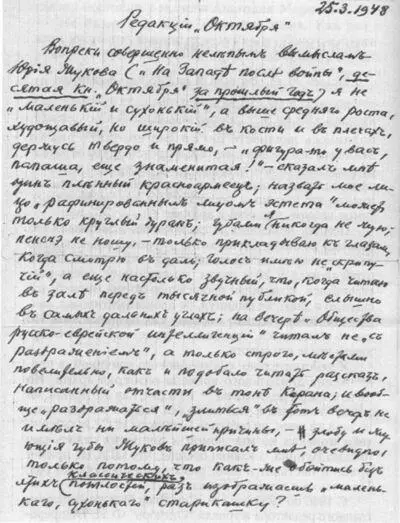 25.3.1948
Редакцiи „Октября"
Вопреки совершенно нелѣпымъ вымысламъ
Юрiя Жукова („На Западѣ послѣ войны", де-
сятая кн. „Октября" за прошлый годъ) я не
„маленькiй и сухонькiй", а выше средняго роста,
худощавый, но широкiй въ кости и въ плечахъ,
держусь твердо и прямо, – „фигура-то у васъ,
папаша, еще знаменитая!" – сказалъ мнѣ
одинъ плѣнный красноармеецъ; назвать мое ли-
цо „рафинированнымъ лицомъ эстета" можетъ
только круглый дуракъ; губами я никогда не жую;
пенснэ не ношу, – только прикладываю къ глазамъ,
когда смотрю въ даль; голосъ имѣю не „скрипу-
чiй", а еще настолько звучный, что, когда читаю
въ залѣ передъ тысячной публикой, слышно
въ самыхъ дальнихъ углахъ; на вечерѣ „Общества
русско-еврейской интеллигенцiи" читалъ не „съ
раздраженiемъ", а только строго, мѣстами
повелительно, какъ и подобало читать разсказъ,
написанный отчасти въ тонѣ Корана; и вооб-
ще „раздражаться", „злиться" въ этотъ вечеръ не
имѣлъ ни малѣйшей причины, – злобу и жу-
ющiя губы Жуковъ приписалъ мнѣ, очевидно,
только потому, что какъ-же обойтись безъ
этихъ классическихъ пошлостей, разъ изображаешь „малень-
каго, сухонькаго" старикашку?